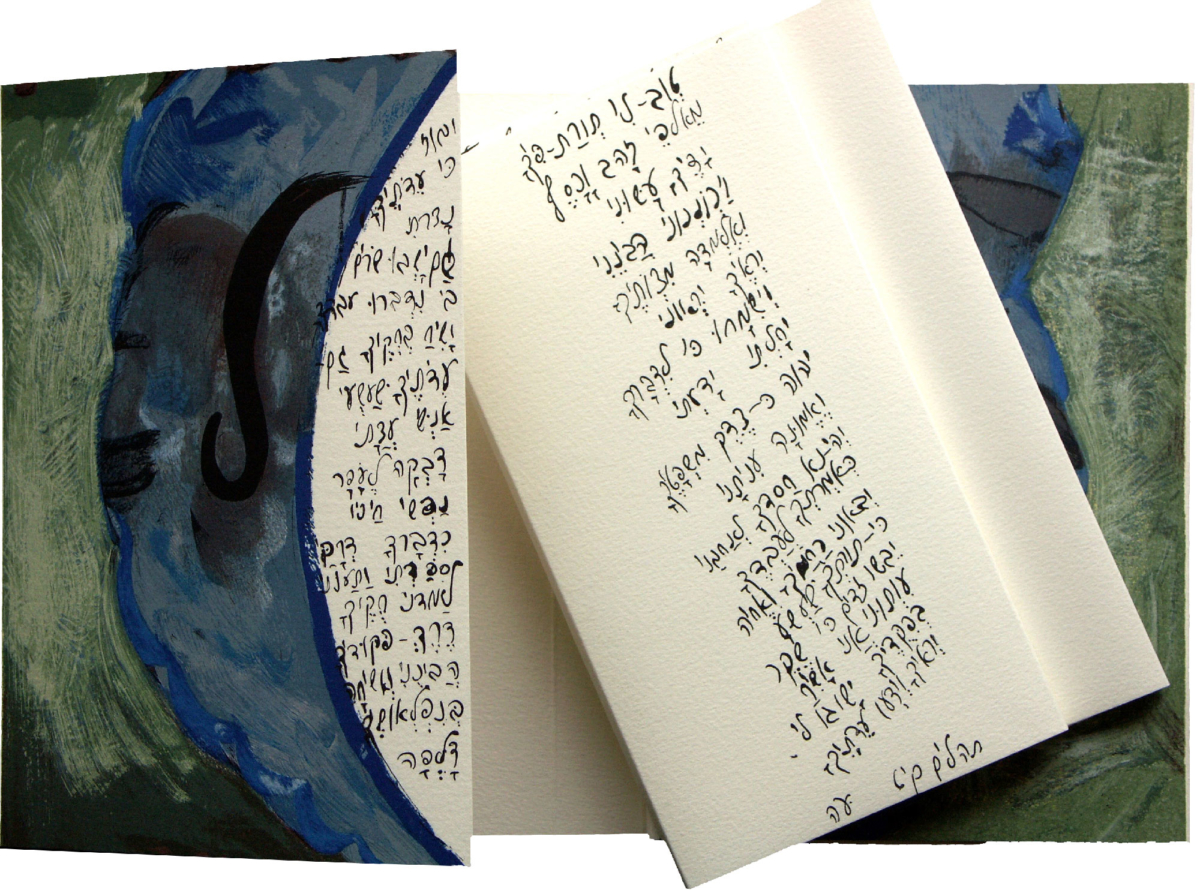 טוֹב-לִי תוֹרַת-פִּיךָ
מֵאַלְפֵי זָהָב וָכָסֶף
יָדֶיךָ עָשׂוּנִי
וַיְכוֹנְנוּנִי הֲבִינֵנִי
וְאֶלְמְדָה מִצְוֹתֶיךָ
יְרֵאֶיךָ יִרְאוּנִי
וְיִשְׂמָחוּ כִּי לִדְבָרְךָ
יִחָלְתִּי יָדַעְתִּי
יהוה כִּי-צֶדֶק מִשְׁפָּטֶיךָ
וֶאֱמוּנָה עִנִּיתָנִי
יְהִי-נָא חַסְדְּךָ לְנַחֲמֵנִי
כְּאִמְרָתְךָ לְעַבְדֶּךָ
יְבֹאוּנִי רַחֲמֶיךָ וְאֶחְיֶה
כִּי-תוֹרָתְךָ שַׁעֲשֻׁעָי
יֵבֹשׁוּ זֵדִים כִּי שֶׁקֶר
עִוְּתוּנִי אֲנִי אָשִׂיחַ
בְּפִקּוּדֶיךָ יָשׁוּבוּ לִי
יְרֵאֶיךָ וְיָדְעוּ עֵדֹתֶיךָ
תהלים קיט
עה
כִּי עֵדֹתֶיךָ
נָצָרְתִּי
גַּם יָשְׁבוּ שָׂרִים
בִּי נִדְבָּרוּ עַבְדְּךָ
יָשִׂיחַ בְּחֻקֶּיךָ גַּם-
עֵדֹתֶיךָ שַׁעֲשֻׁעָי
אַנְשֵׁי עֲצָתִי
דָּבְקָה לֶעָפָר
נַפְשִׁי חַיֵּנִי
כִּדְבָרֶךָ דְּרָכַי
סִפַּרְתִּי וַתַּעֲנֵנִי
לַמְּדֵנִי חֻקֶּיךָ
דֶּרֶךְ-פִּקּוּדֶיךָ
הֲבִינֵנִי וְאָשִׂיחָה
בְּנִפְלְאוֹתֶיךָ
דָּלְפָה